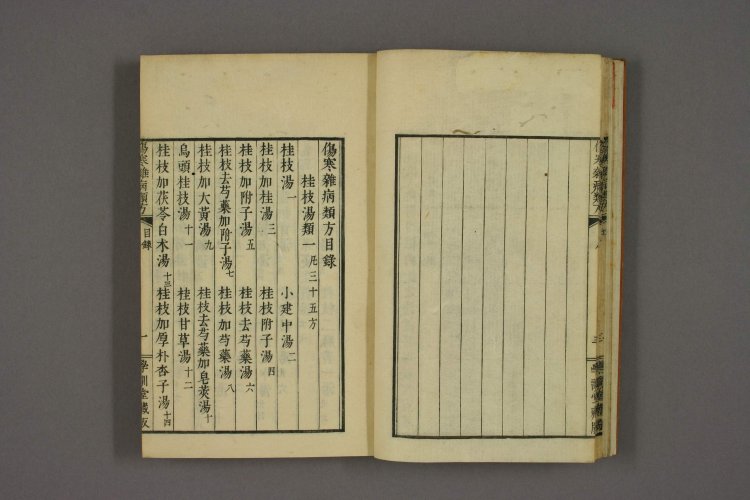 傷寒雜病類方目錄
桂枝湯類一 凡三十五方
桂枝湯一 小建中湯二
桂枝加桂湯三 桂枝附子湯四
桂枝加附子湯五 桂枝去芍藥湯六
桂枝去芍藥加附子湯七 桂枝加芍藥湯八
桂枝加大黃湯九 桂枝去芍藥加皂莢湯十
烏頭桂枝湯十一 桂枝甘草湯十二
桂枝加茯苓白朮湯十三 桂枝加厚朴杏子湯十四
傷寒雜病類方 目錄 一 學訓堂藏版
傷寒雜病類方